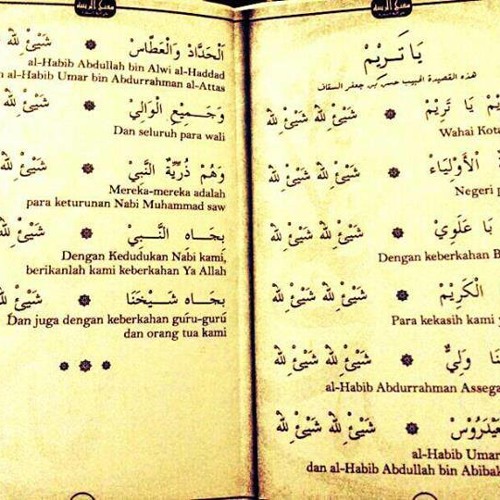 يَا تَرِيْمْ
هذه القصيدة للحبيب حسن بن جعفر السقاف
يَا تَرِيْمْ ۞ شَيْئْ لِلّٰهْ شَيْئْ لِلّٰهْ
Wahai Kota
الْأَوْلِيَاءْ ۞ شَيْئْ لِلّٰهْ شَيْئْ لِلّٰهْ
Negeri
بَا عَلَوِيْ ۞ شَيْئْ لِلّٰهْ شَيْئْ لِلّٰهْ
Dengan keberkahan
الْكَرِيْمْ ۞ شَيْئْ لِلّٰهْ شَيْئْ لِلّٰهْ
Para kekasih kami
وَلِيْ ۞ شَيْئْ لِلّٰهْ شَيْئْ لِلّٰهْ
al-Habib Abdurrahman Assega
عَيْدَرُوْسْ ۞ شَيْئْ لِلّٰهْ شَيْئْ لِلّٰهْ
al-Habib Umar
dan al-Habib Abdullah bin Abibak
اَلْحَدَّادْ وَالْعَطَّاسْ ۞ شَيْئْ لِلّٰهْ
al-Habib Abdullah bin Alwi al-Haddad
al-Habib Umar bin Abdurrahman al-Attas
وَجَمِيْعِ الْوَالِيْ ۞ شَيْئْ لِلّٰهْ
Dan seluruh para wali
وَهُمْ ذُرِّيَّةُ النَّبِيْ ۞ شَيْئْ لِلّٰهْ
Mereka-mereka adalah
para keturunan Nabi Muhammad saw
بِجَاهِ النَّبِيْ ۞ شَيْئْ لِلّٰهْ
Dengan Kedudukan Nabi kami,
berikanlah kami keberkahan Ya Allah
بِجَاهِ شَيْخِنَا ۞ شَيْئْ لِلّٰهْ
Dan juga dengan keberkahan guru-guru
dan orang tua kami